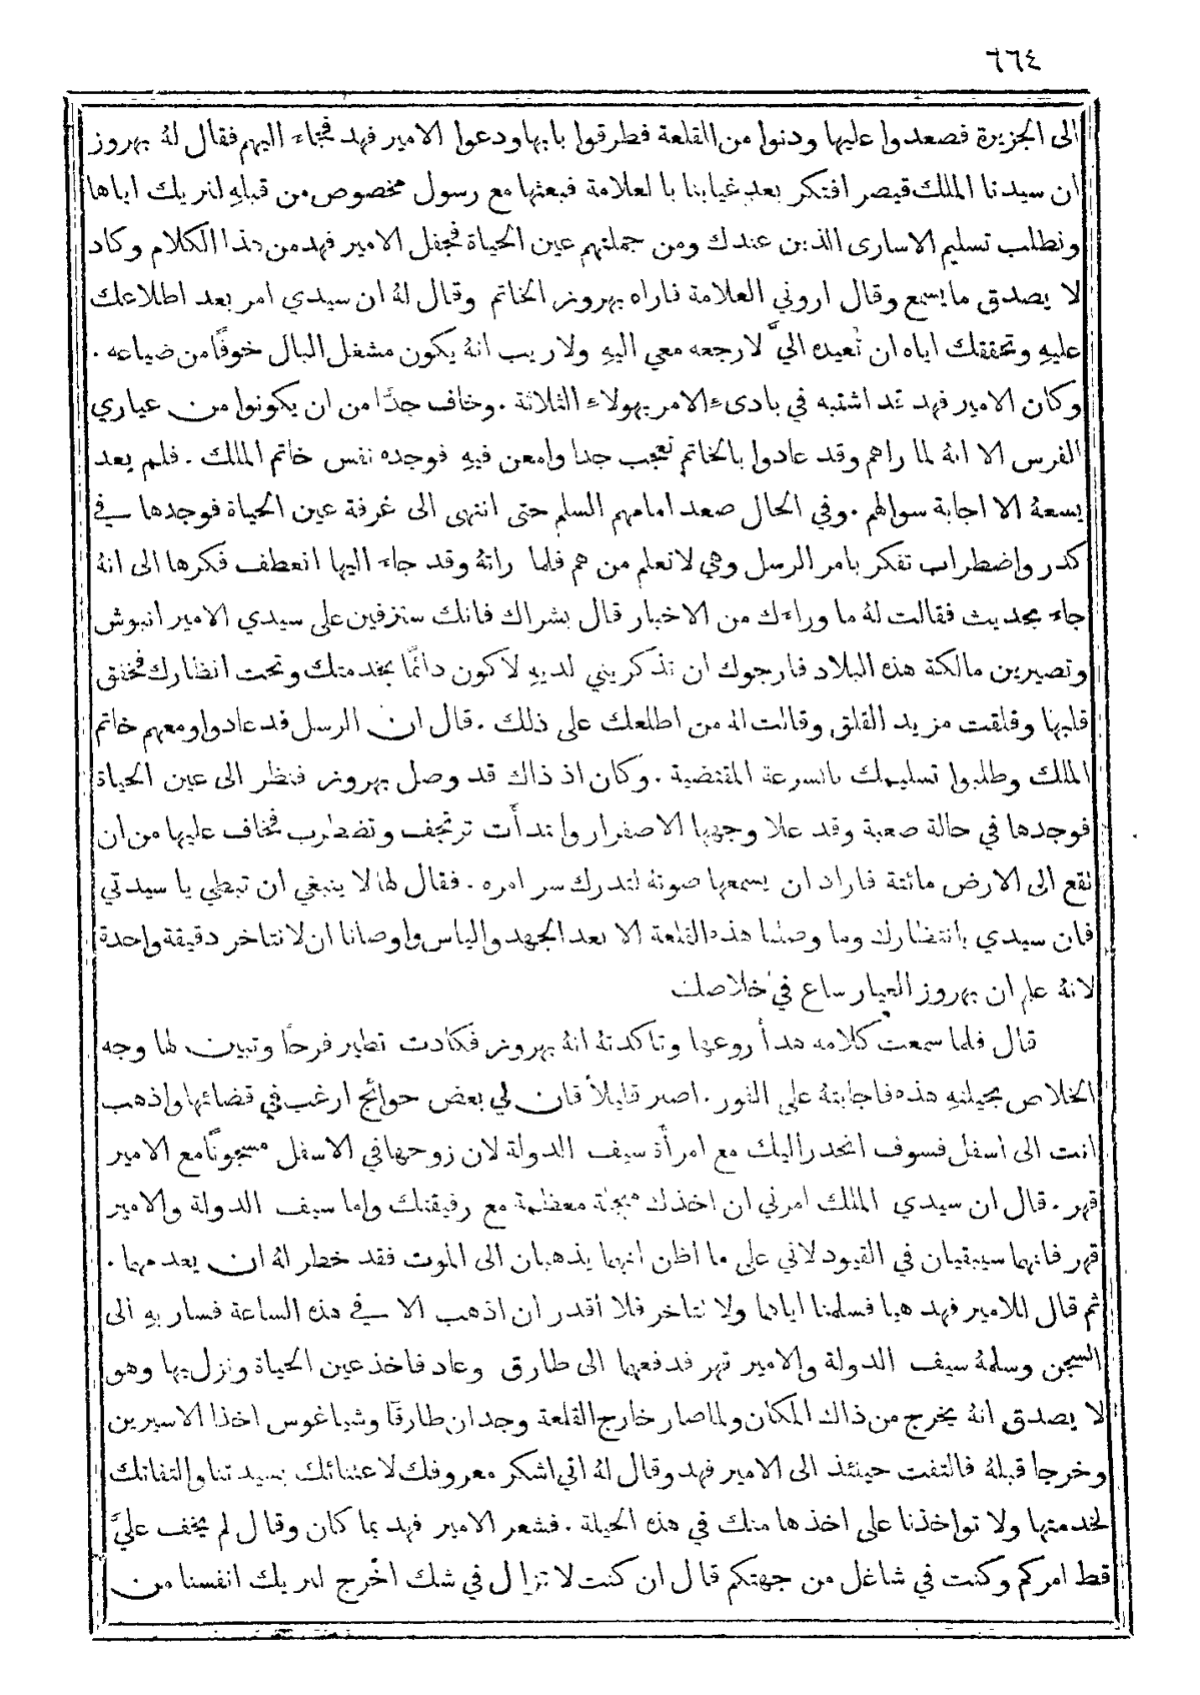 ٦٦٤
الى الجزيرة فصعدوا عليها ودنوا من القلعة فطرقوا بابها ودعوا الامير فهد فجاء اليهم فقال لهُ بهروز
ان سيدنا الملك قيصر افتكر بعد غيابنا بالعلامة فبعثها مع رسول مخصوص من قبلهِ لنريك اياها
ونطلب تسليم الاسارى الذين عندك ومن جملتهم عين الحياة فجفل الامير فهد من هذا الكلام وكاد
لا يصدق ما يسمع وقال اروني العلامة فاراه بهروز الخاتم وقال لهُ ان سيدي امر بعد اطلاعك
عليهِ وتحققك اياه ان تُعيده اليَّ لارجعه معي اليهِ ولاريب انهُ يكون مشغل البال خوفًا من ضياعه .
وكان الامير فهد قد اشتبه في بادىء الامر بهولاء الثلاثة . وخاف جدًّا من ان يكونوا من عياري
الفرس الا انهُ لما راهم وقد عادوا بالخاتم تعجب جدا وامعن فيهِ فوجده نفس خاتم الملك . فلم يعد
يسعهُ الا اجابة سوالهم . وفي الحال صعد امامهم السلم حتى انتهى الى غرفة عين الحياة فوجدها في
كدر واضطراب تفكر بامر الرسل وهي لا تعلم من هم فلما راتهُ وقد جاء اليها انعطف فكرها الى انهُ
جاء بحديث فقالت لهُ ما وراءك من الاخبار قال بشراك فانك ستزفين على سيدي الامير انبوش
وتصيرين مالكة هذه البلاد فارجوك ان تذكريني لديهِ لاكون دائمًا بخدمتك وتحت انظارك فخفق
قلبها وقلقت مزيد القلق وقالت له من اطلعك على ذلك . قال ان الرسل قد عادوا ومعهم خاتم
الملك وطلبوا تسليمك بالسرعة المقتضية . وكان اذ ذاك قد وصل بهروز فنظر الى عين الحياة
فوجدها في حالة صعبة وقد علا وجهها الاصفرار وابتدأت ترتجف وتضطرب فخاف عليها من ان
تقع الى الارض مائتة فاراد ان يسمعها صوتهُ لتدرك سر امره . فقال لها لا ينبغي ان تبطي يا سيدتي
فان سيدي بانتظارك وما وصلنا هذه القلعة الا بعد الجهد والياس واوصانا ان لا نتاخر دقيقة واحدة
لانهُ علم ان بهروز العيار ساع في خلاصك
قال فلما سمعت كلامه هدأ روعها وتاكدتهُ انهُ بهروز فكادت تطير فرحًا وتبين لها وجه
الخلاص بحيلتهِ هذه فاجابتهُ على الفور . اصبر قليلاً فان لي بعض حوائج ارغب في قضائها واذهب
انت الى اسفل فسوف انحدر اليك مع امرأة سيف الدولة لان زوجها في الاسفل مسجونًا مع الامير
قهر . قال ان سيدي الملك امرني ان اخذك مبجلة معظمة مع رفيقتك واما سيف الدولة والامير
قهر فانهما سيبقيان في القيود لاني على ما أظن انهما يذهبان الى الموت فقد خطر لهُ ان يعدمهما .
ثم قال للامير فهد هيا فسلمنا اياهما ولا تتاخر فلا أقدر ان اذهب الا في هذه الساعة فسار بهِ الى
السجن وسلمهُ سيف الدولة والامير قهر فدفعهما الى طارق وعاد فاخذ عين الحياة ونزل بها وهو
لا يصدق انهُ يخرج من ذاك المكان ولما صار خارج القلعة وجد ان طارقًا وشياغوس اخذا الاسيرين
وخرجا قبلهُ فالتفت حينئذ الى الامير فهد وقال لهُ اني اشكر معروفك لاعتنائك بسيدتنا والتفاتك
لخدمتها ولا تواخذنا على اخذها منك في هذه الحيلة . فشعر الامير فهد بما كان وقال لم يخف عليَّ
قط امركم وكنت في شاغل من جهتكم قال ان كنت لا تزال في شك اخرج لنريك انفسنا من